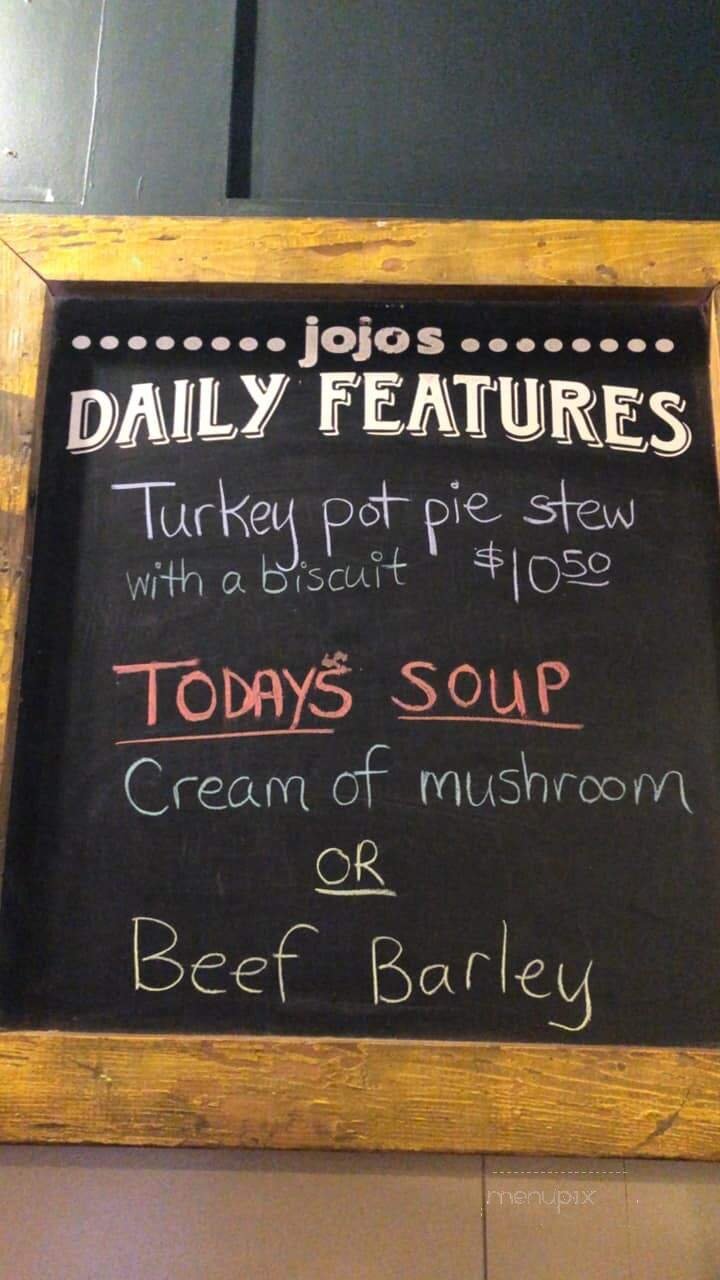 jojos
DAILY FEATURES
Turkey pot pie stew
with a biscuit $10 50
TODAYS SOUP
Cream of mushroom
OR
Beef Barley
menupix